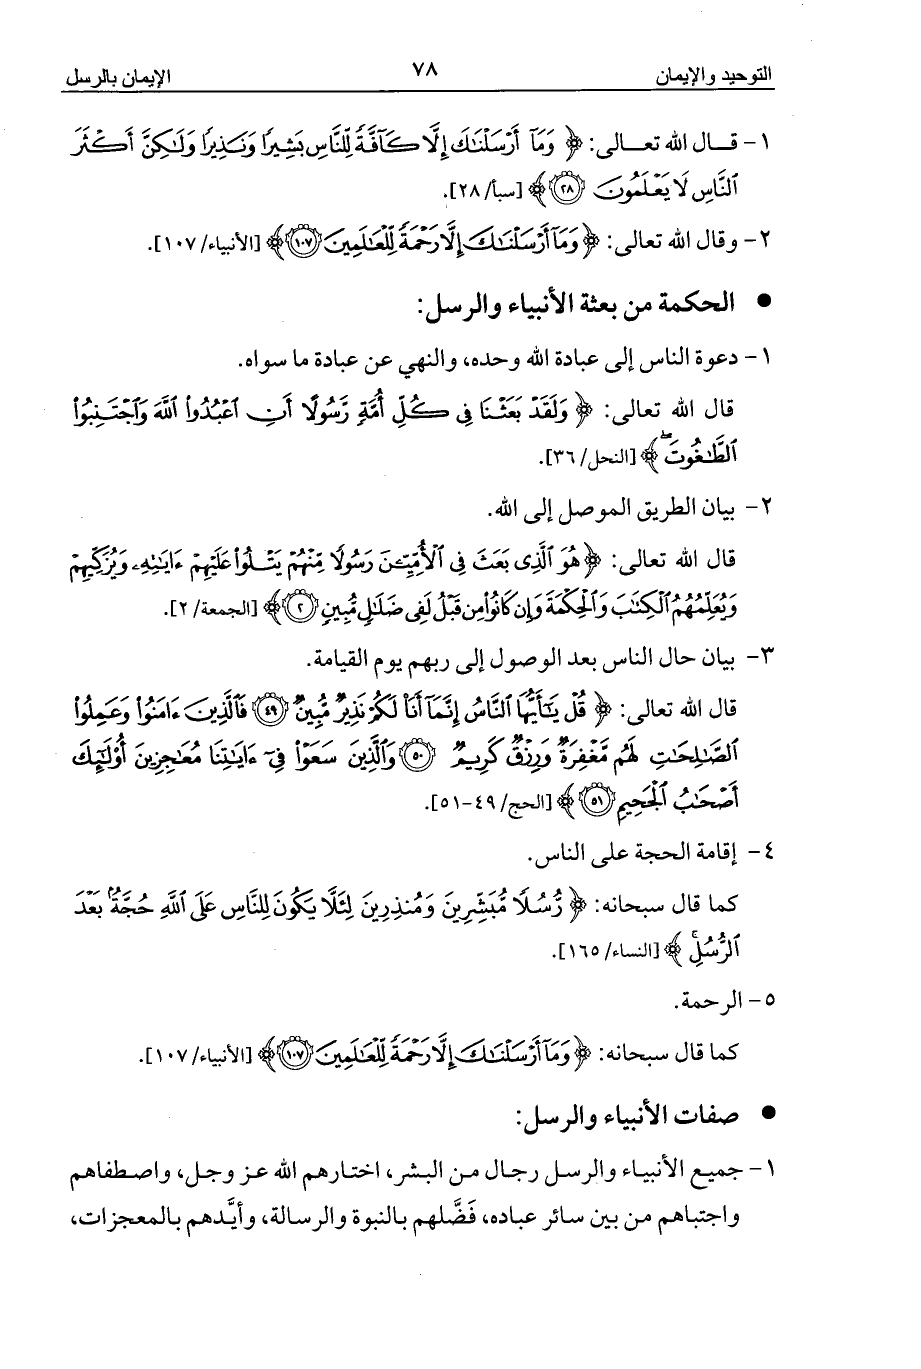 التوحيد والإيمان ٧٨ الإيمان بالرسل
١- قـــال الله تعـــالى: ﴿ وَمَآ أَرْسَلْنَٰكَ إِلَّا كَآفَّةً لِّلنَّاسِ بَشِيرًا وَنَذِيرًا وَلَٰكِنَّ أَكْثَرَ
ٱلنَّاسِ لَا يَعْلَمُونَ ۝٢٨ ﴾ [سبأ/ ٢٨].
٢- وقال الله تعالى: ﴿ وَمَآ أَرْسَلْنَٰكَ إِلَّا رَحْمَةً لِّلْعَٰلَمِينَ ۝١٠٧ ﴾ [الأنبياء/ ١٠٧].
● الحكمة من بعثة الأنبياء والرسل:
١- دعوة الناس إلى عبادة الله وحده، والنهي عن عبادة ما سواه.
قال الله تعالى: ﴿ وَلَقَدْ بَعَثْنَا فِى كُلِّ أُمَّةٍ رَّسُولًا أَنِ ٱعْبُدُوا۟ ٱللَّهَ وَٱجْتَنِبُوا۟
ٱلطَّٰغُوتَ ۖ ﴾ [النحل/ ٣٦].
٢- بيان الطريق الموصل إلى الله.
قال الله تعالى: ﴿ هُوَ ٱلَّذِى بَعَثَ فِى ٱلْأُمِّيِّـۧنَ رَسُولًا مِّنْهُمْ يَتْلُوا۟ عَلَيْهِمْ ءَايَٰتِهِۦ وَيُزَكِّيهِمْ
وَيُعَلِّمُهُمُ ٱلْكِتَٰبَ وَٱلْحِكْمَةَ وَإِن كَانُوا۟ مِن قَبْلُ لَفِى ضَلَٰلٍ مُّبِينٍ ۝٢ ﴾ [الجمعة/ ٢].
٣- بيان حال الناس بعد الوصول إلى ربهم يوم القيامة.
قال الله تعالى: ﴿ قُلْ يَٰٓأَيُّهَا ٱلنَّاسُ إِنَّمَآ أَنَا۠ لَكُمْ نَذِيرٌ مُّبِينٌ ۝٤٩ فَٱلَّذِينَ ءَامَنُوا۟ وَعَمِلُوا۟
ٱلصَّٰلِحَٰتِ لَهُم مَّغْفِرَةٌ وَرِزْقٌ كَرِيمٌ ۝٥٠ وَٱلَّذِينَ سَعَوْا۟ فِىٓ ءَايَٰتِنَا مُعَٰجِزِينَ أُو۟لَٰٓئِكَ
أَصْحَٰبُ ٱلْجَحِيمِ ۝٥١ ﴾ [الحج/ ٤٩-٥١].
٤- إقامة الحجة على الناس.
كما قال سبحانه: ﴿ رُّسُلًا مُّبَشِّرِينَ وَمُنذِرِينَ لِئَلَّا يَكُونَ لِلنَّاسِ عَلَى ٱللَّهِ حُجَّةٌۢ بَعْدَ
ٱلرُّسُلِ ۚ ﴾ [النساء/ ١٦٥].
٥- الرحمة.
كما قال سبحانه: ﴿ وَمَآ أَرْسَلْنَٰكَ إِلَّا رَحْمَةً لِّلْعَٰلَمِينَ ۝١٠٧ ﴾ [الأنبياء/ ١٠٧].
● صفات الأنبياء والرسل:
١- جميع الأنبياء والرسل رجال من البشر، اختارهم الله عز وجل، واصطفاهم
واجتباهم من بين سائر عباده، فَضَّلهم بالنبوة والرسالة، وأيَّدهم بالمعجزات،